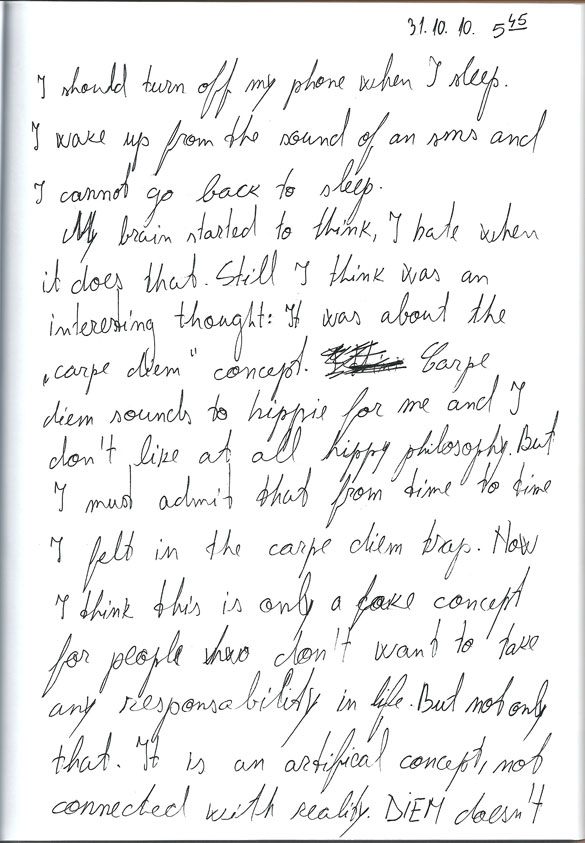 31.10.10. 5 45
I should turn off my phone when I sleep.
I wake up from the sound of an sms and
I cannot go back to sleep.
My brain started to think, I hate when
it does that. Still I think was an
interesting thought: It was about the
„carpe diem" concept. Carpe
diem sounds to hippie for me and I
don't like at all hippy philosophy. But
I must admit that from time to time
I felt in the carpe diem trap. Now
I think this is only a fake concept
for people who don't want to take
any responsability in life. But not only
that. It is an artifical concept, not
connected with reality. DIEM doesn't